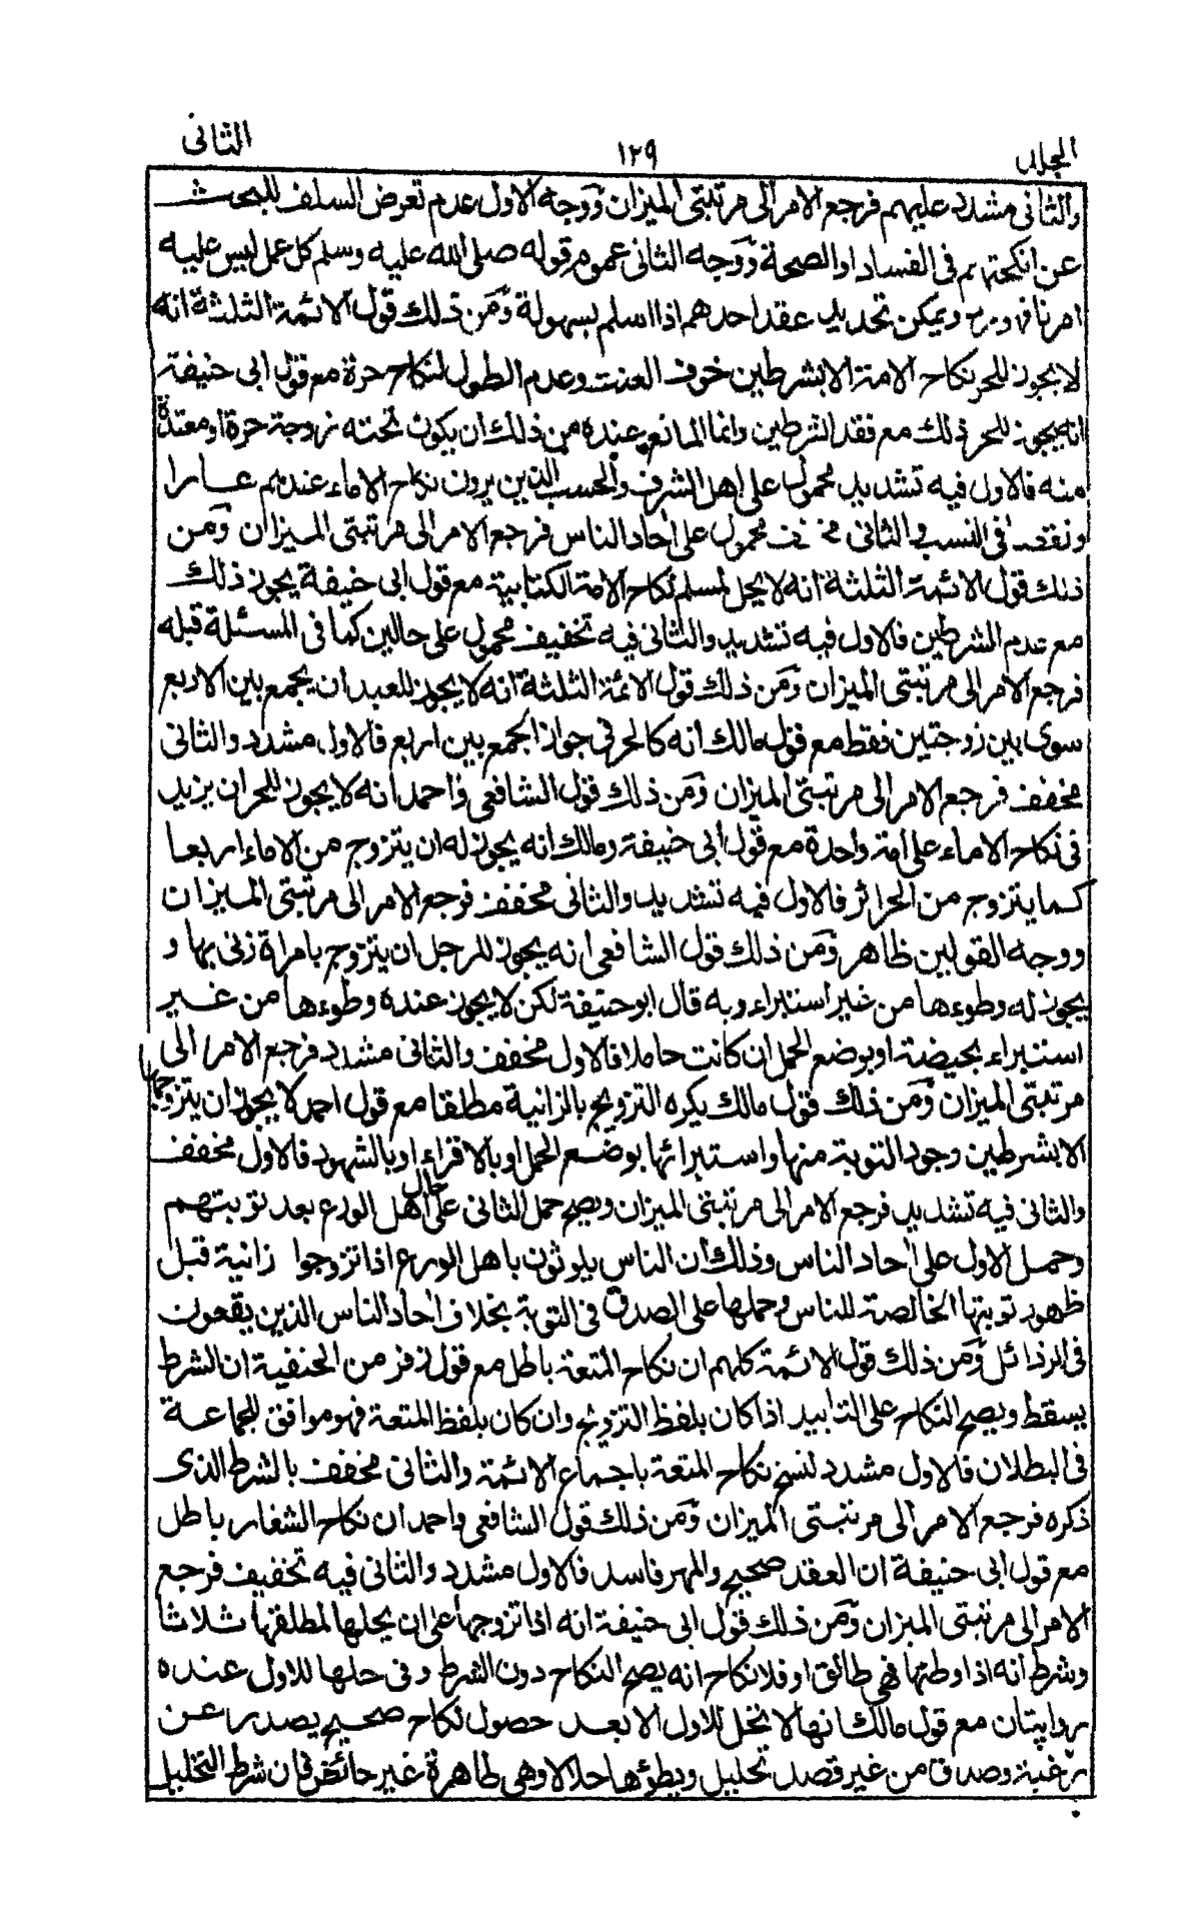 المجلد ١٢٩ الثانى
والثانى مشدد عليهم فرجع الامر الى مرتبتى الميزان ووجه الاول عدم تعرض السلف للبحث
عن انكحتهم فى الفساد او الصحة ووجه الثانى عموم قوله صلى الله عليه وسلم كل عمل ليس عليه
امرنا فهو رد ويمكن تجديد عقد احدهم اذا اسلم بسهولة ومن ذلك قول الائمة الثلثة انه
لا يجوز للحر نكاح الامة الا بشرطين خوف العنت وعدم الطول لنكاح حرة مع قول ابى حنيفة
انه يجوز للحر ذلك مع فقد الشرطين وانما المانع عنده من ذلك ان يكون تحته زوجة حرة او معتدة
منه فالاول فيه تشديد محمول على اهل الشرف والحسب الذين يرون نكاح الاماء عندهم عارا
ونقصا فى النسب والثانى مخفف محمول على احاد الناس فرجع الامر الى مرتبتى الميزان ومن
ذلك قول الائمة الثلثة انه لا يحل لمسلم نكاح الامة الكتابية مع قول ابى حنيفة يجوز ذلك
مع عدم الشرطين فالاول فيه تشديد والثانى فيه تخفيف محمول على حالين كما فى المسئلة قبله
فرجع الامر الى مرتبتى الميزان ومن ذلك قول الائمة الثلثة انه لا يجوز للعبد ان يجمع بين الاربع
سوى بين زوجتين فقط مع قول مالك انه كالحر فى جواز الجمع بين اربع فالاول مشدد والثانى
مخفف فرجع الامر الى مرتبتى الميزان ومن ذلك قول الشافعى واحمد انه لا يجوز للحر ان يزيد
فى نكاح الاماء على امة واحدة مع قول ابى حنيفة ومالك انه يجوز له ان يتزوج من الاماء اربعا
كما يتزوج من الحرائر فالاول فيه تشديد والثانى مخفف فرجع الامر الى مرتبتى الميزان
ووجه القولين ظاهر ومن ذلك قول الشافعى انه يجوز للرجل ان يتزوج بامراة زنى بها و
يجوز له وطوءها من غير استبراء وبه قال ابو حنيفة لكن لا يجوز عنده وطوءها من غير
استبراء بحيضة او بوضع الحمل ان كانت حاملا فالاول مخفف والثانى مشدد فرجع الامر الى
مرتبتى الميزان ومن ذلك قول مالك يكره التزويج بالزانية مطلقا مع قول احمد لا يجوز ان يتزوجها
الا بشرطين وجود التوبة منها واستبرائها بوضع الحمل او بالاقراء او بالشهود فالاول مخفف
والثانى فيه تشديد فرجع الامر الى مرتبتى الميزان ويصح حمل الثانى على حال اهل الورع بعد توبتهم
وحمل الاول على احاد الناس وذلك ان الناس يلوثون باهل الورع اذا تزوجوا زانية قبل
ظهور توبتها الخالصة للناس وحملها على الصدق فى التوبة بخلاف احاد الناس الذين يقعون
فى الرذائل ومن ذلك قول الائمة كلهم ان نكاح المتعة باطل مع قول زفر من الحنفية ان الشرط
يسقط ويصح النكاح على التابيد اذا كان بلفظ التزويج وان كان بلفظ المتعة فهو موافق للجماعة
فى البطلان فالاول مشدد لنسخ نكاح المتعة باجماع الائمة والثانى مخفف بالشرط الذى
ذكره فرجع الامر الى مرتبتى الميزان ومن ذلك قول الشافعى واحمد ان نكاح الشغار باطل
مع قول ابى حنيفة ان العقد صحيح والمهر فاسد فالاول مشدد والثانى فيه تخفيف فرجع
الامر الى مرتبتى الميزان ومن ذلك قول ابى حنيفة انه اذا تزوجها على ان يحلها لمطلقها ثلاثا
وشرط انه اذا وطئها فهى طالق او فلا نكاح انه يصح النكاح دون الشرط وفى حلها للاول عنده
روايتان مع قول مالك انها لا تحل للاول الا بعد حصول نكاح صحيح يصدر عن
رغبة وصداق من غير قصد تحليل ويطؤها حلالا وهى طاهرة غير حائض فان شرط التحليل